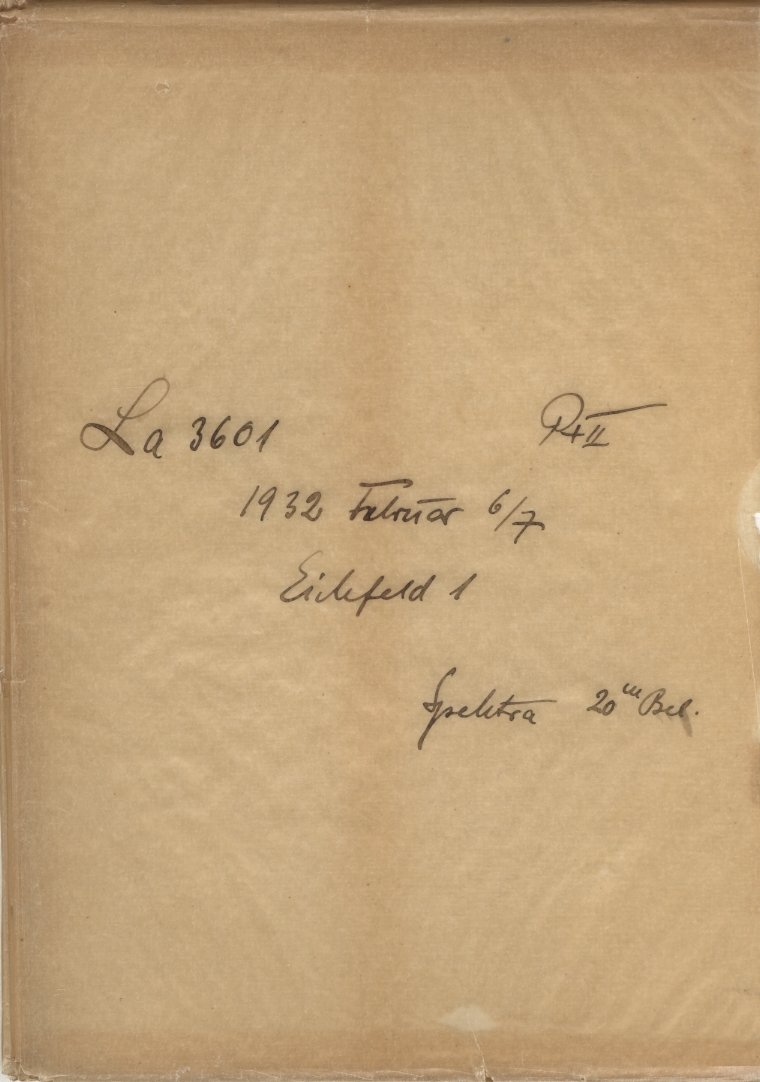 La 3601
1932 Februar 6/7
Eichfeld 1
Spektra 20m Bel.